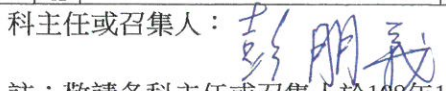 科主任或召集人：彭朋義
註：敬請各科主任或召集人於108年1